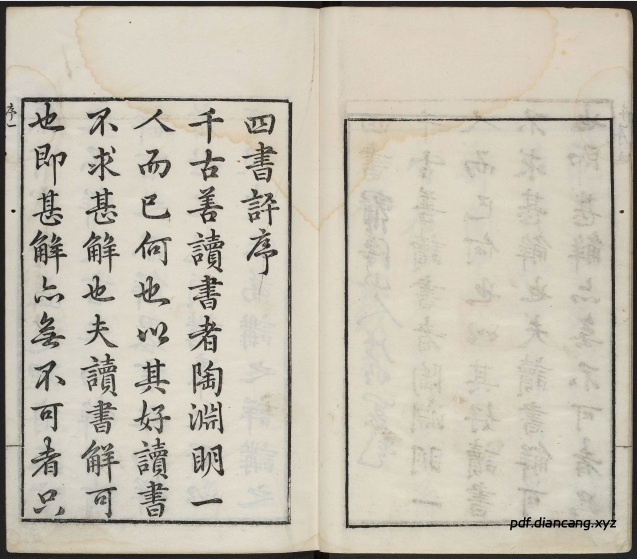 四書評序
千古善讀書者陶淵明一
人而已何也以其好讀書
不求甚解也夫讀書解可
也即甚解亦無不可者只
序一
pdf.diancang.xyz